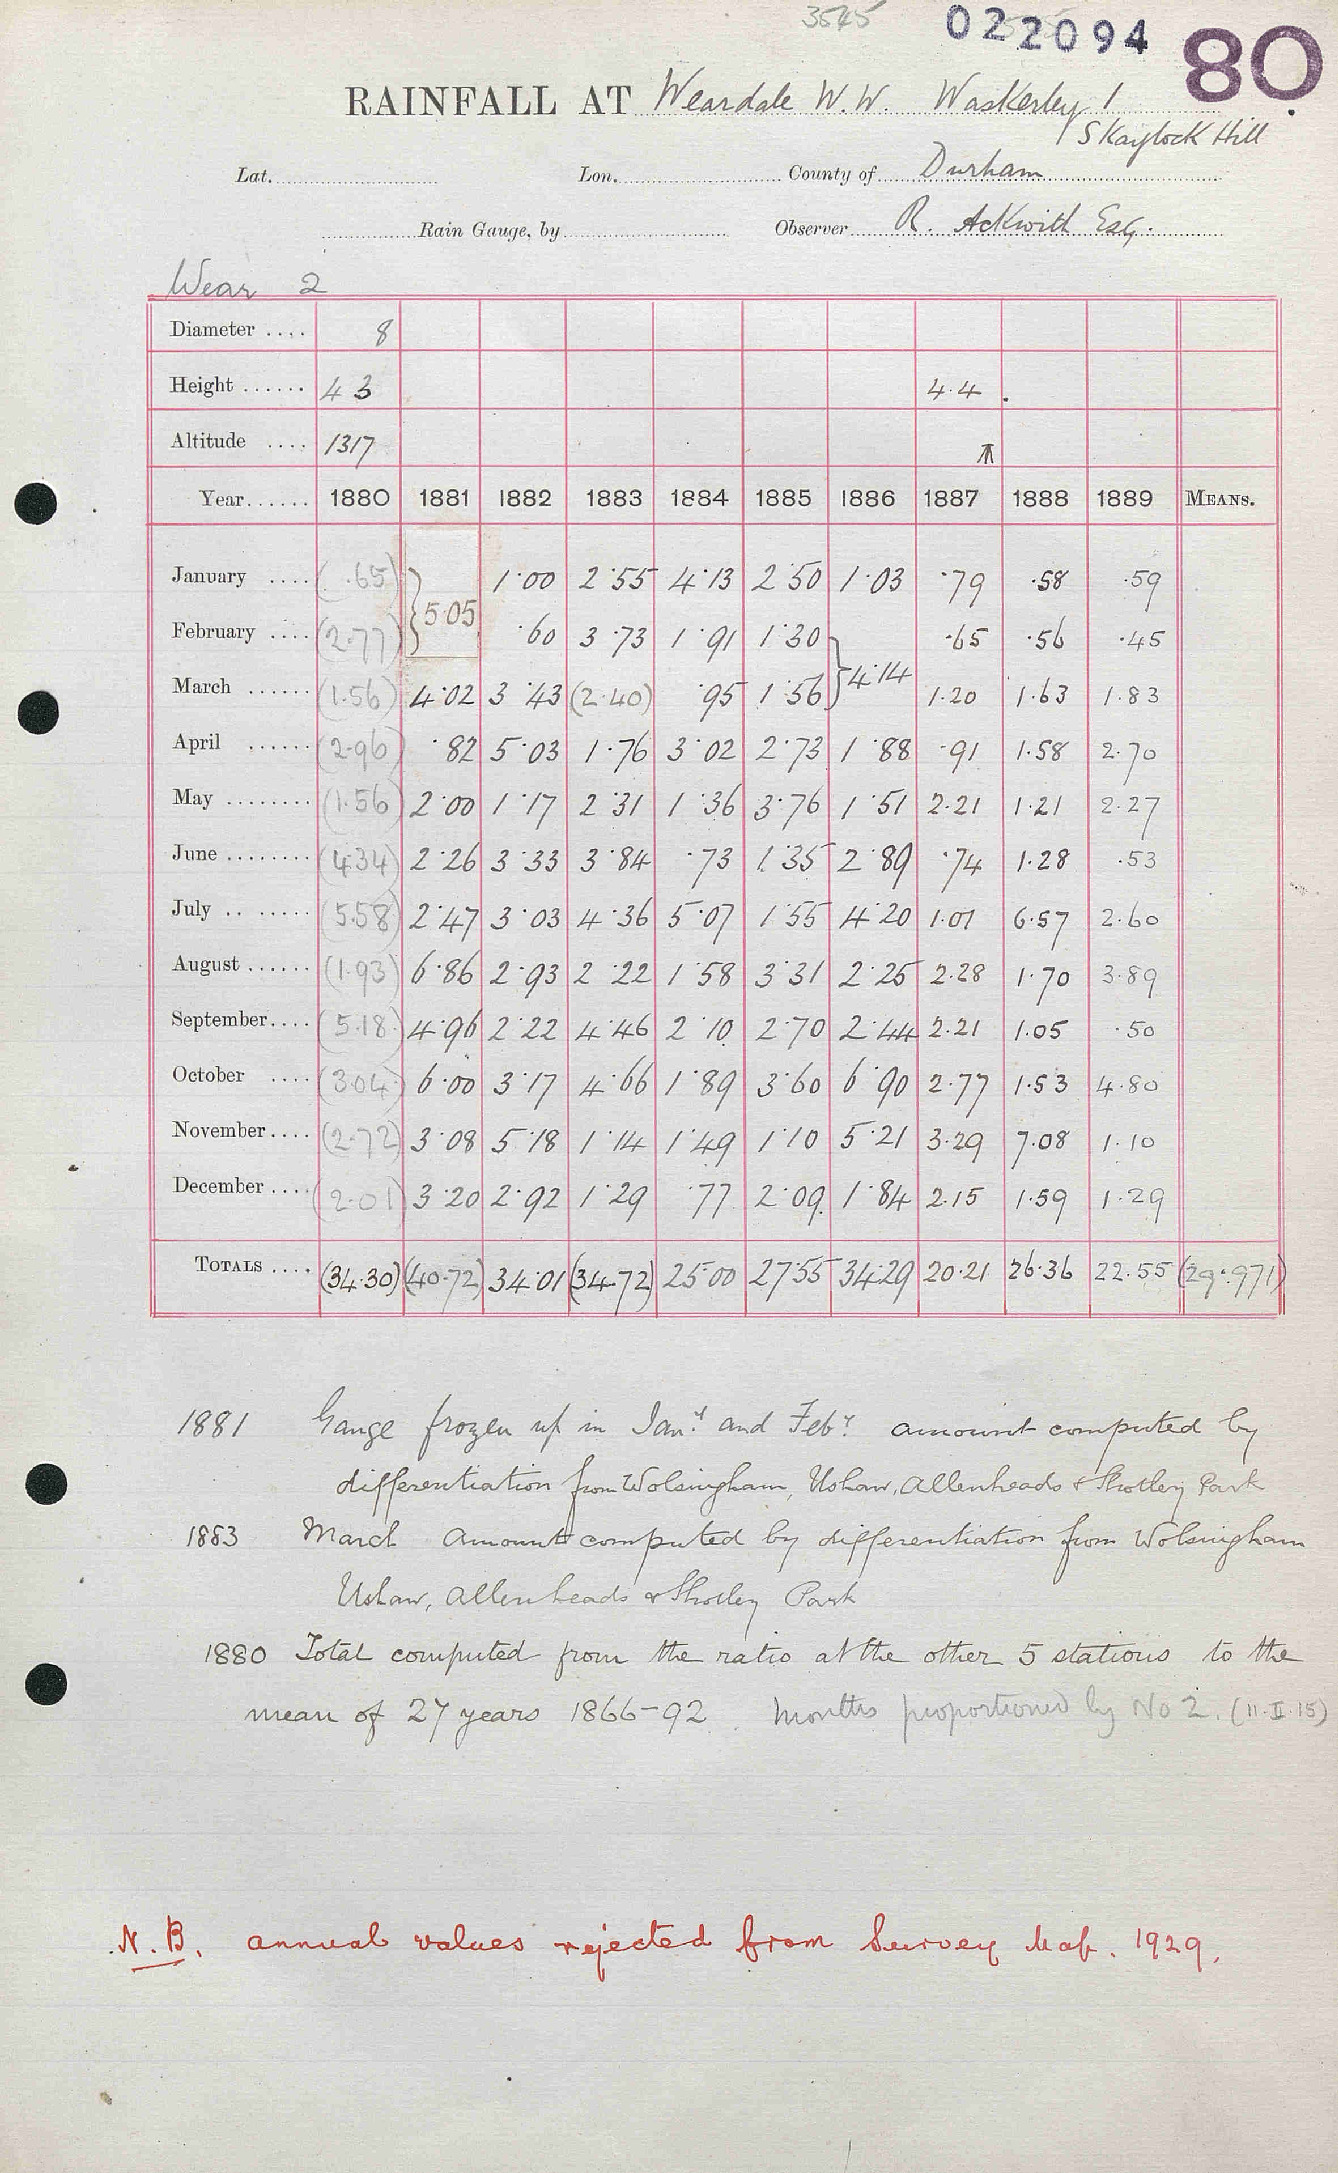 3545 022094 80
RAINFALL AT Weardale W.W. Waskerley 1
Skaylock Hill
Lat. Lon. County of Durham
Rain Gauge, by Observer R. Askwith Esq.
Wear 2
Diameter .... 8
Height ...... 4 3 4.4
Altitude .... 1317
Year...... 1880 1881 1882 1883 1884 1885 1886 1887 1888 1889 MEANS.
January .... (.65) } 5.05 1.00 2.55 4.13 2.50 1.03 .79 .58 .59
February .... (2.77) .60 3.73 1.91 1.30 } 4.14 .65 .56 .45
March ...... (1.56) 4.02 3.43 (2.40) .95 1.56 1.20 1.63 1.83
April ...... (2.96) .82 5.03 1.76 3.02 2.73 1.88 .91 1.58 2.70
May ........ (1.56) 2.00 1.17 2.31 1.36 3.76 1.51 2.21 1.21 2.27
June ........ (4.34) 2.26 3.33 3.84 .73 1.35 2.89 .74 1.28 .53
July .. ...... (5.58) 2.47 3.03 4.36 5.07 1.55 4.20 1.01 6.57 2.60
August ...... (1.93) 6.86 2.93 2.22 1.58 3.31 2.25 2.28 1.70 3.89
September.... (5.18) 4.96 2.22 4.46 2.10 2.70 2.44 2.21 1.05 .50
October .... (3.04) 6.00 3.17 4.66 1.89 3.60 6.90 2.77 1.53 4.80
November.... (2.72) 3.08 5.18 1.14 1.49 1.10 5.21 3.29 7.08 1.10
December .... (2.01) 3.20 2.92 1.29 .77 2.09 1.84 2.15 1.59 1.29
TOTALS .... (34.30) (40.72) 34.01 (34.72) 25.00 27.55 34.29 20.21 26.36 22.55 (29.971)
1881 Gauge frozen up in Jany and Feby amount computed by
differentiation from Wolsingham, Ushaw, Allenheads & Shotley Park
1883 March Amount computed by differentiation from Wolsingham
Ushaw, Allenheads & Shotley Park
1880 Total computed from the ratio at the other 5 stations to the
mean of 27 years 1866-92. Months proportioned by No 2. (11.II.15)
N.B. annual values rejected from Survey Map. 1929.